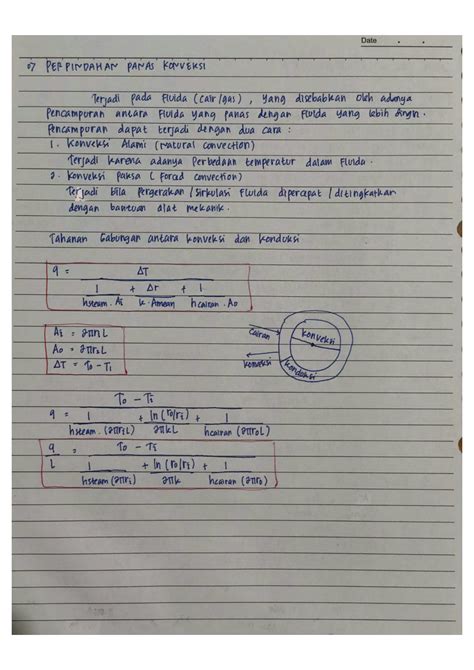 Date
07 PERPINDAHAN PANAS KONVEKSI
Terjadi pada Fluida (cair/gas), yang disebabkan oleh adanya
Pencampuran antara Fluida yang panas dengan Fluida yang lebih dingin.
Pencampuran dapat terjadi dengan dua cara :
1. Konveksi Alami (natural convection)
Terjadi karena adanya Perbedaan temperatur dalam Fluida.
2. Konveksi Paksa (Forced convection)
Terjadi bila Pergerakan / Sirkulasi Fluida dipercepat / ditingkatkan
dengan bantuan alat mekanik.
Tahanan Gabungan antara konveksi dan konduksi
q = ΔT
1 + Δr + 1
hsteam . Ai k. Amean hcairan . Ao
Ai = 2πriL
Ao = 2πroL
ΔT = To - Ti
Cairan
Konveksi
Konveksi
Konduksi
To - Ti
q = 1 + ln (ro/ri) + 1
hsteam (2πriL) 2πkL hcairan (2πroL)
q = To - Ti
L 1 + ln (ro/ri) + 1
hsteam (2πri) 2πk hcairan (2πro)